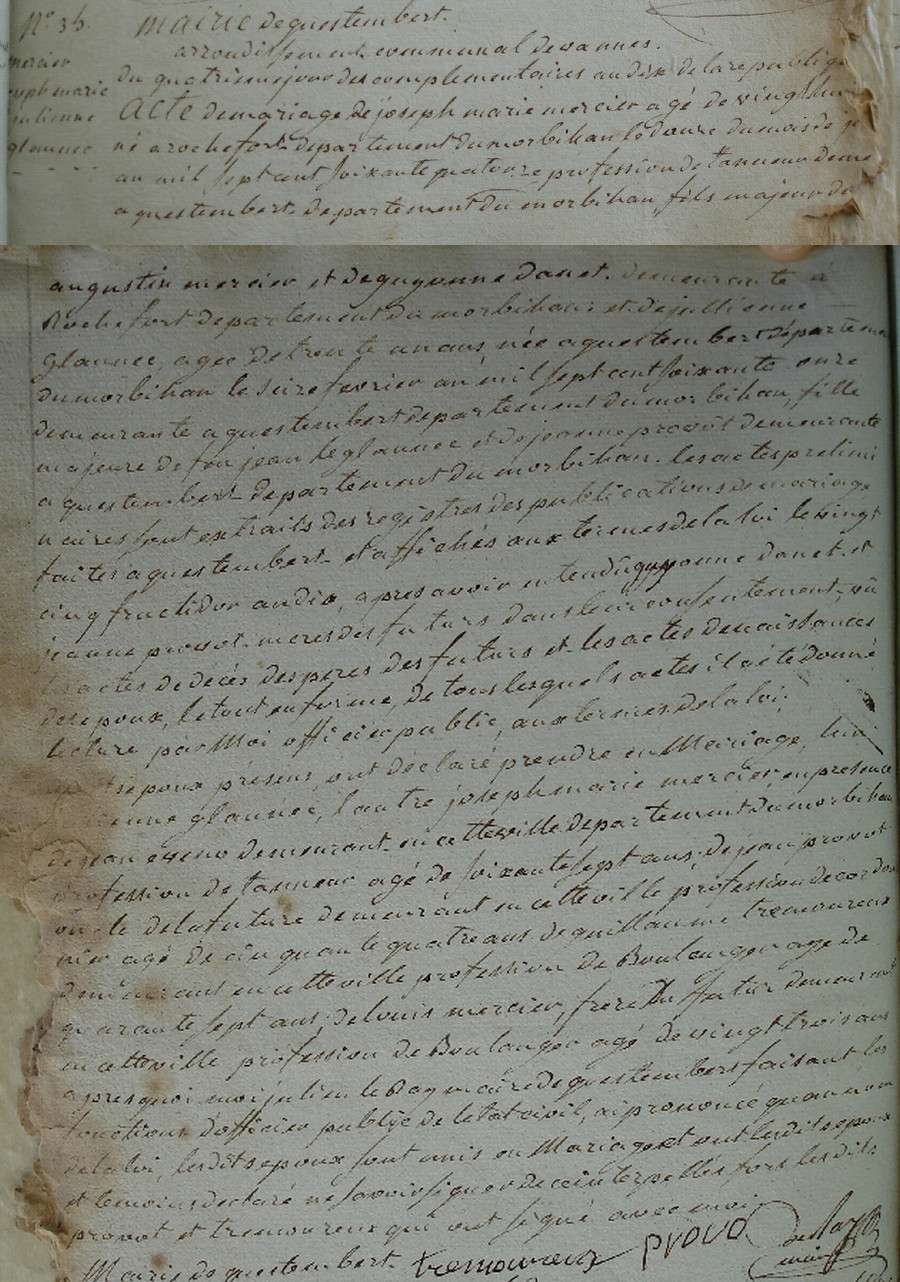 N° 35 mairie de questembert.
arrondissement communal de vannes.
mercier du quatrieme jour des complementaires an dix de la republique
joseph marie Acte de mariage de joseph marie mercier agé de vingt huit
julienne né a rochefort departement du morbihan le douze du mois de
glaunec an mil sept cent soixante quatorze profession de tanneur deme
a questembert departement du morbihan, fils majeur de
augustin mercier et de guyonne danet. demeurante à
Rochefort departement du morbihan; et de jullienne
glaunec, agée de trente un ans, née a questembert départeme
du morbihan le seize fevrier an mil sept cent soixante onze
demeurante a questembert departement du morbihan, fille
majeure de feu jean le glaunec et de jeanne provôt demeurante
a questembert departement du morbihan. les actes prelimi
naires sont extraits des registres des publications de mariage
faites a questembert et affichés aux termes de la loi le vingt
cinq fructidor an dix, apres avoir entendû guyonne danet et
jeanne provot meres des futurs dans leur consentement, vû
les actes de décès des peres des futurs et les actes de naissances
des epoux, le tout en forme, de tous lesquels actes il a été donné
lecture par Moi officier public, aux termes de la loi.
epoux présens, ont déclaré prendre en Mariage, l'un
glaunec, l'autre joseph marie mercier, en presence
de jean demeurant en cette ville departement du morbihan
profession de tanneur agé de soixante sept ans; de jean provot
oncle de la future demeurant en cette ville profession de cordon
nier agé de cinquante quatre ans de guillaume tremoureux
demeurant en cette ville profession de Boulanger agé de
quarante sept ans; de louis mercier, frere du futur demeurant
en cette ville profession de Boulanger agé de vingt trois ans
apres quoi moi julien le Bay maire de questembert faisant les
fonctions d'officier public de l'etat civil, ai prononcé qu'au nom
de la loi, les dits epoux sont unis en Mariage et ont les dits epoux
et temoins declaré ne savoir signer de ce interpellés fors les dits
provot et tremoureux qui ont signé avec moi
Maire de questembert. tremoureux provo
maire